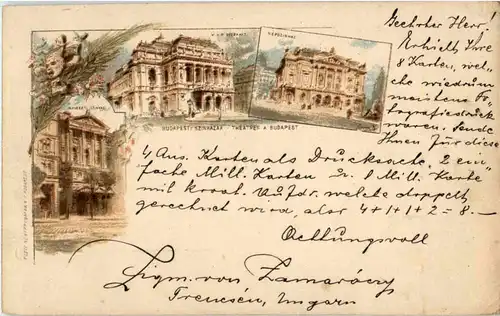 M. KIR. OPERAHÁZ
NÉPSZINHÁZ
NEMZETI SZINHÁZ
BUDAPESTI SZINHÁZAK - THEATRES A BUDAPEST
Geehrter Herr!
Erhielt Ihre
8 Karten, wel-
che wiedrum
meistens Fo-
tografiedruck
waren. Sende
Ihnen für diese
4 Ans. Karten als Drucksache, 2 ein-
fache Mill. Karten u. 1 Mill. Karte
mit kroat. Aufdr. welche doppelt
gerechnet wird, also 4+1+1+2=8.—
Achtungsvoll
Sigm. von Zamaróczy
Trencsén, Ungarn